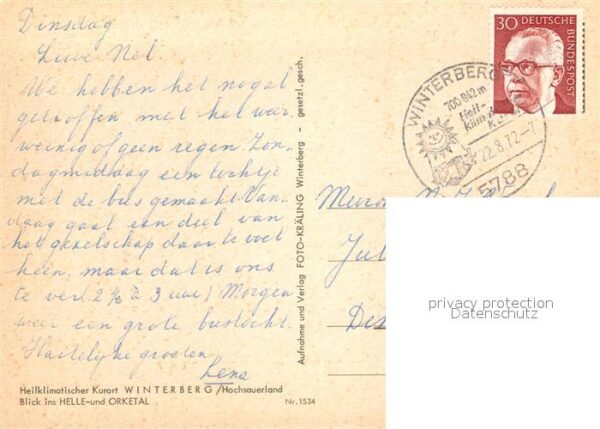 Dinsdag
Lieve Nel.
We hebben het nogal
getroffen met het weer
weinig of geen regen. Zon
dagmiddag een tochtje
met de bus gemaakt. Van
daag gaat een deel van
het gezelschap daar te voet
heen, maar dat is ons
te ver (2 ½ à 3 uur) Morgen
weer een grote bustocht.
Hartelijke groeten
Lena
Heilklimatischer Kurort WINTERBERG/Hochsauerland
Blick ins HELLE-und ORKETAL
Nr. 1534
Aufnahme und Verlag FOTO-KRÄLING Winterberg - gesetzl. gesch.
30 DEUTSCHE
BUNDESPOST
WINTERBERG
700-842m
Heil-
22.8.72-7
5788
privacy protection
Datenschutz